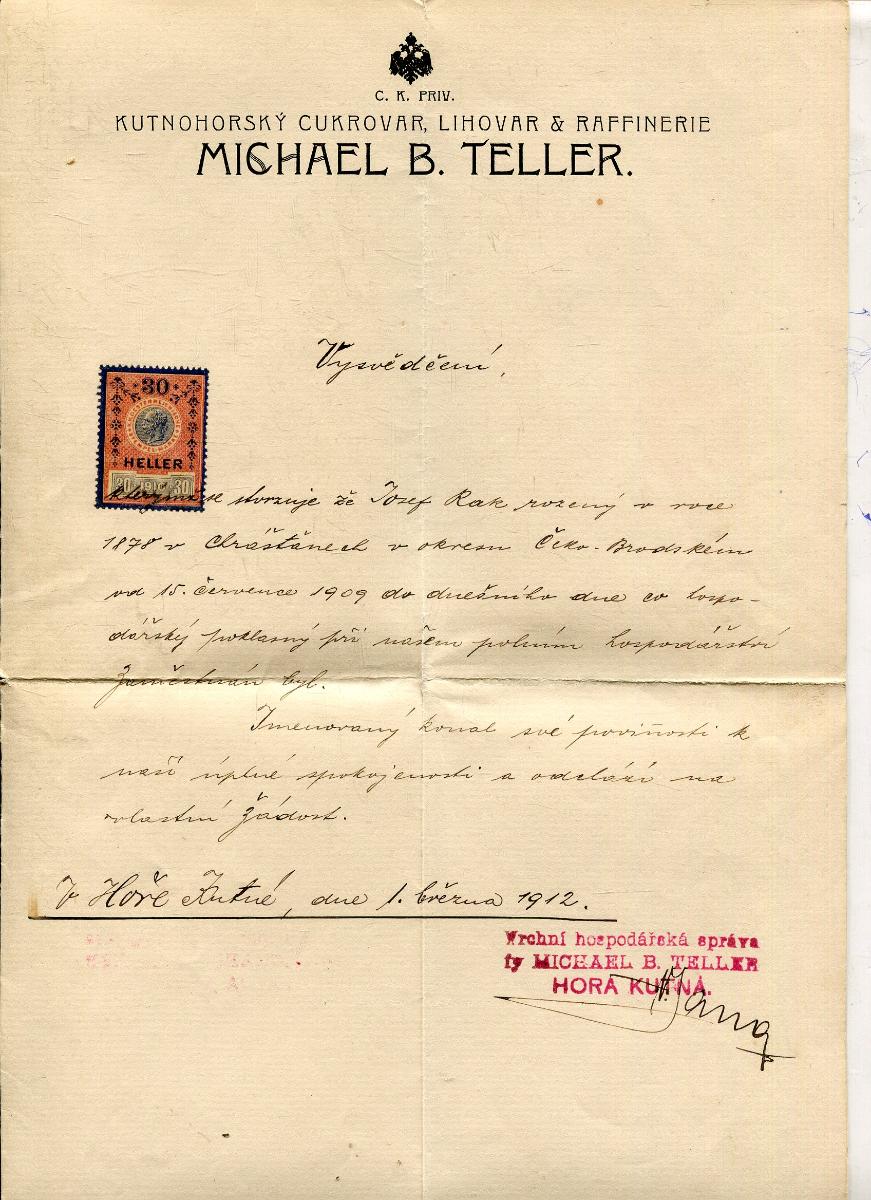 C. K. PRIV.
KUTNOHORSKÝ CUKROVAR, LIHOVAR & RAFFINERIE
MICHAEL B. TELLER.
Vysvědčení,
30
HELLER
30 1910 30
kterýmž se stvrzuje že Josef Rak rozený v roce
1878 v Chrášťanech v okresu Česko-Brodském
od 15. července 1909 do dnešního dne co hospo-
dářský poklasný při našem polním hospodářství
zaměstnán byl.
Jmenovaný konal své povinosti k
naší úplné spokojenosti a odchází na
vlastní žádost.
V Hoře Kutné, dne 1. března 1912.
Vrchní hospodářská správa
fy MICHAEL B. TELLER
HORA KUTNÁ.